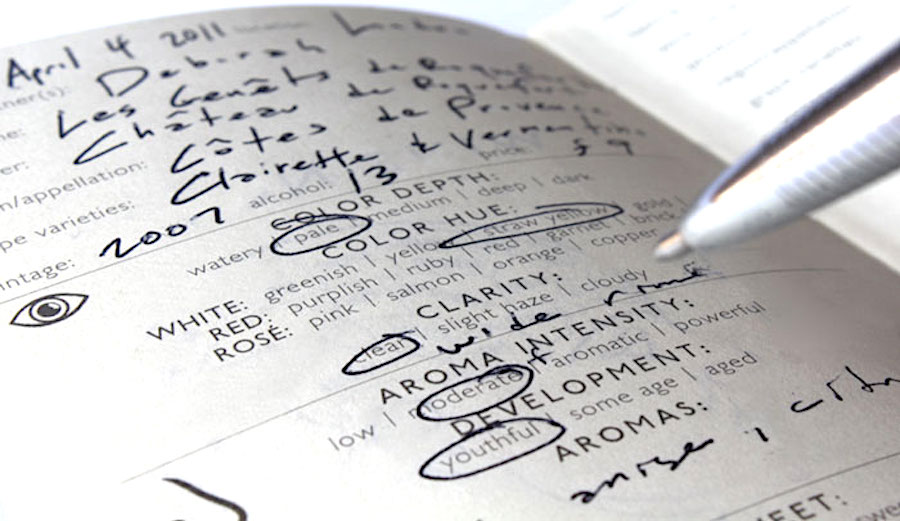 April 4 2011
Deborah
Les Genêts de
Château de
n/appellation: Côtes de Provence
pe varieties: Clairette & Vermentino
ntage: 2007 alcohol: 13 price: $9
COLOR DEPTH:
watery | pale | medium | deep | dark
COLOR HUE:
WHITE: greenish | yellow | straw yellow | gold |
RED: purplish | ruby | red | garnet | brick
ROSÉ: pink | salmon | orange | copper
CLARITY:
clear | slight haze | cloudy
wide
AROMA INTENSITY:
low | moderate | aromatic | powerful
DEVELOPMENT:
youthful | some age | aged
AROMAS:
anise,
EET: